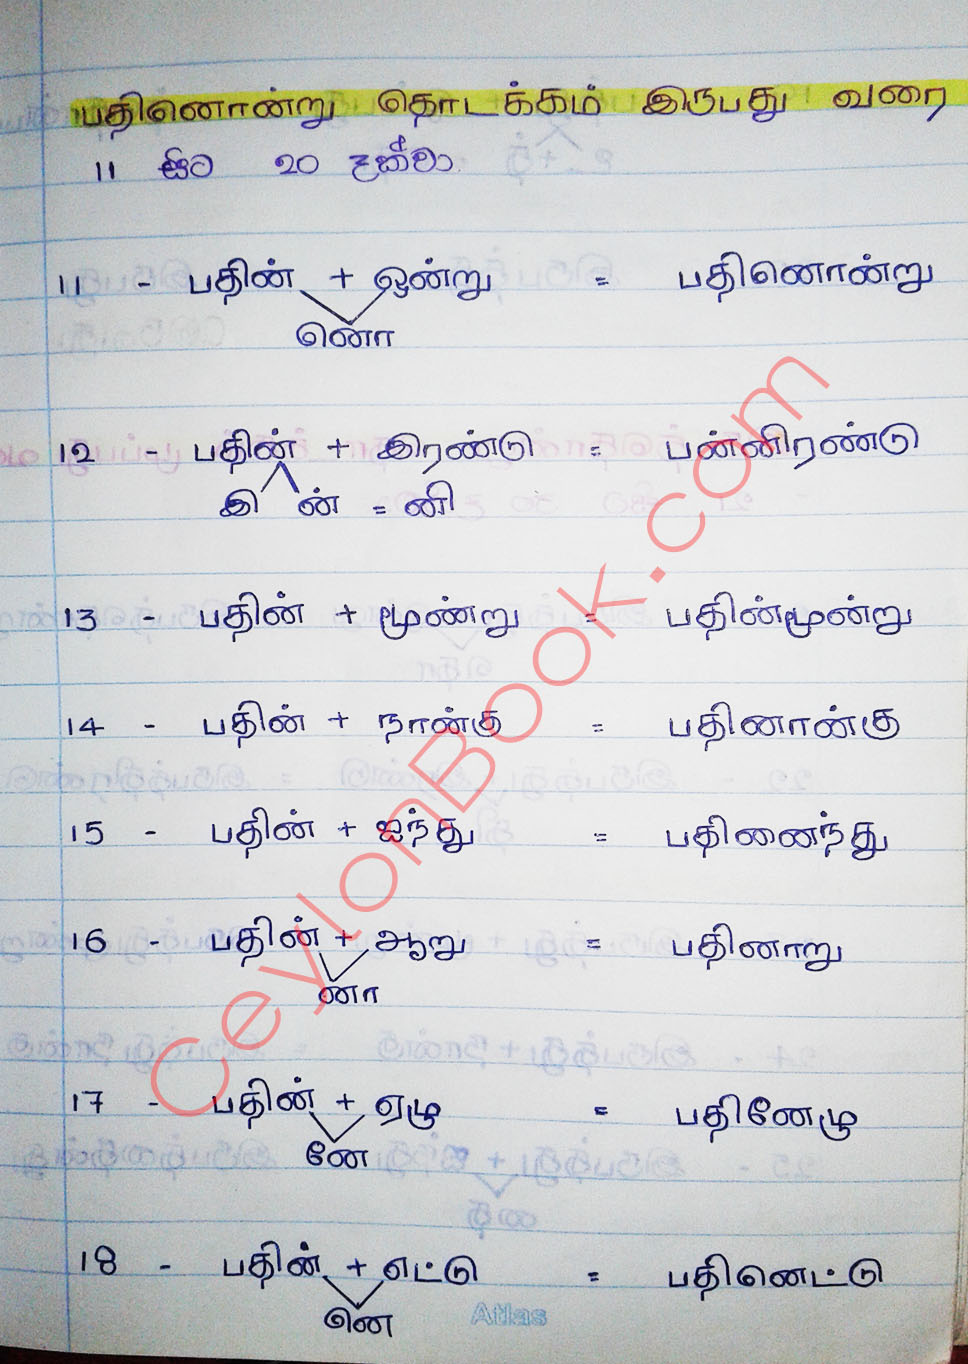 பதினொன்று தொடக்கம் இருபது வரை
11 සිට 20 දක්වා
11 - பதின் + ஒன்று = பதினொன்று
னொ
12 - பதின் + இரண்டு = பன்னிரண்டு
இ ன் = னி
13 - பதின் + மூன்று = பதின்மூன்று
14 - பதின் + நான்கு = பதினான்கு
15 - பதின் + ஐந்து = பதினைந்து
16 - பதின் + ஆறு = பதினாறு
னா
17 - பதின் + ஏழு = பதினேழு
னே
18 - பதின் + எட்டு = பதினெட்டு
னெ
Atlas
CeylonBook.com